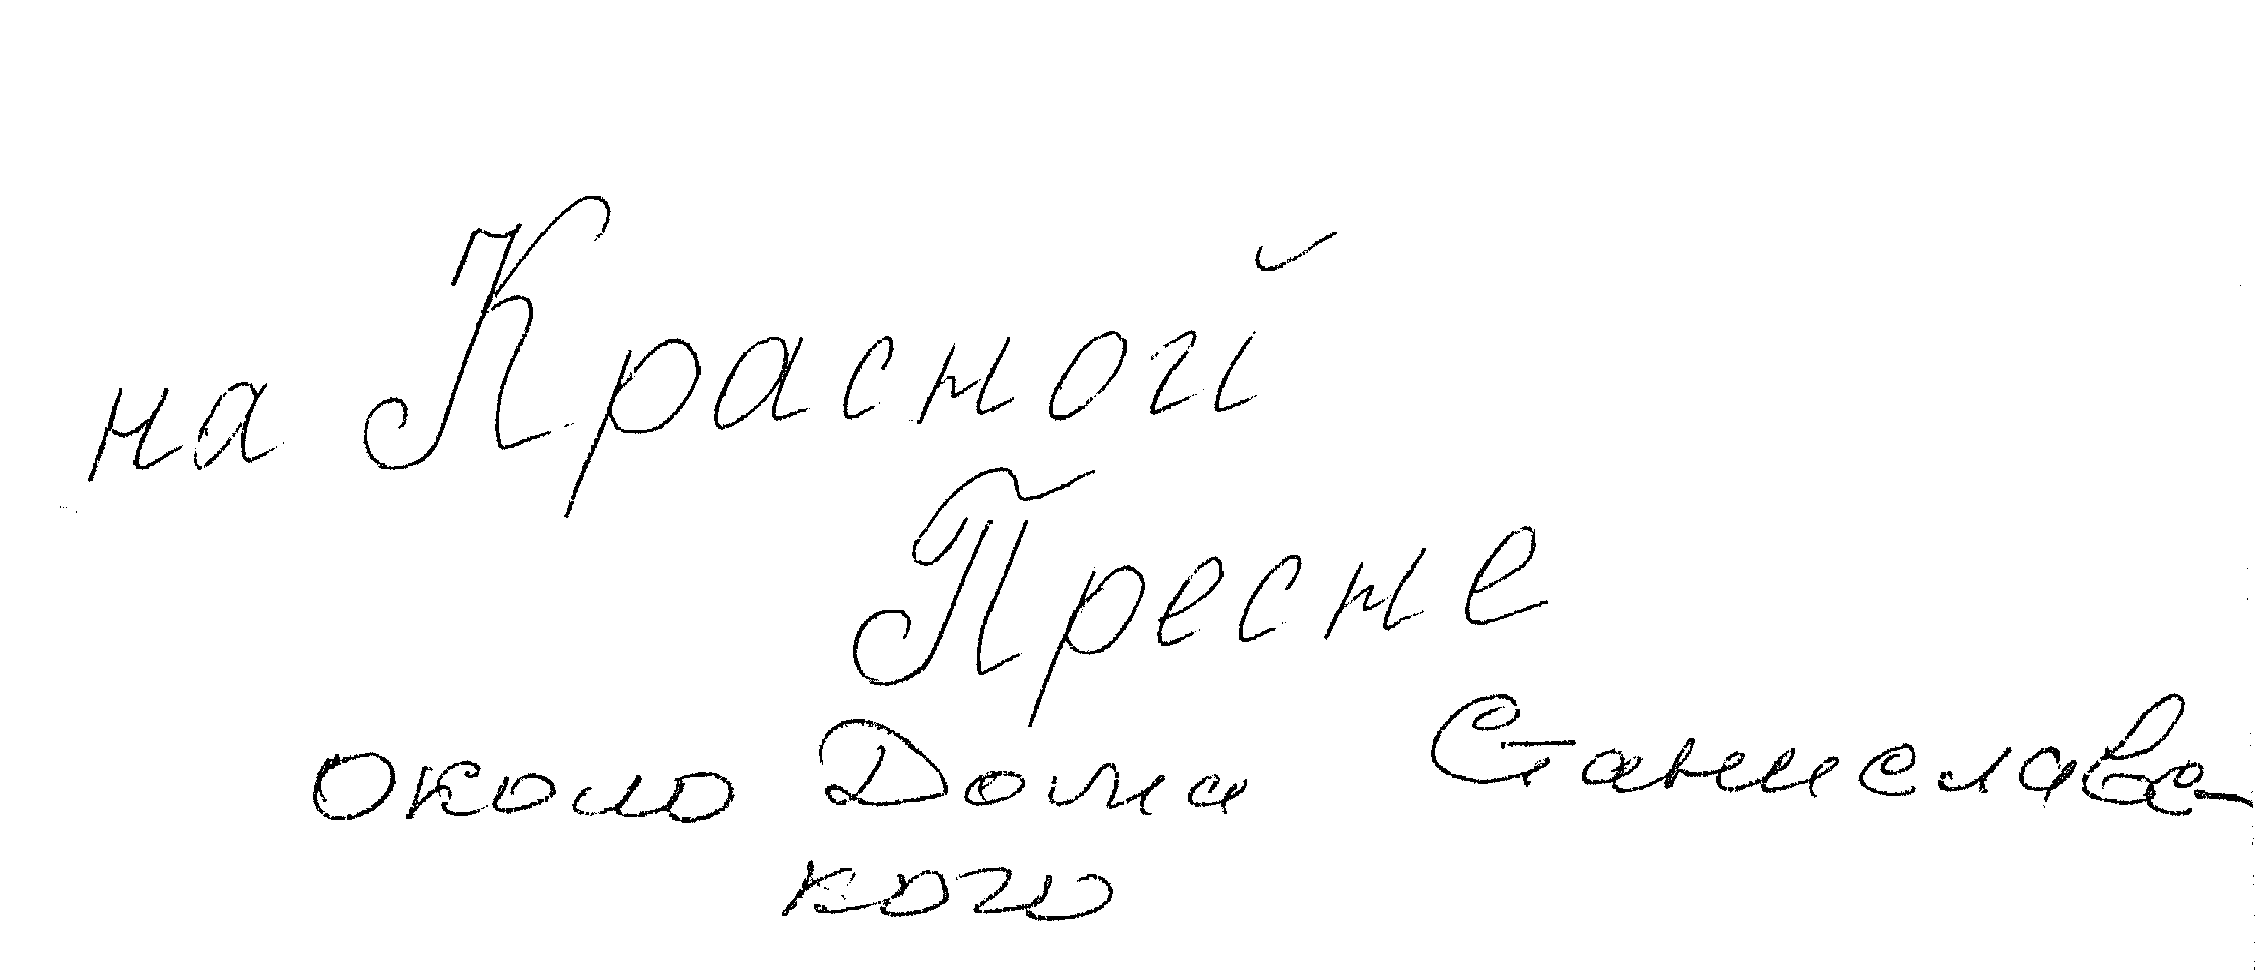 на Красной
Пресне
около Дома Станиславс-
кого